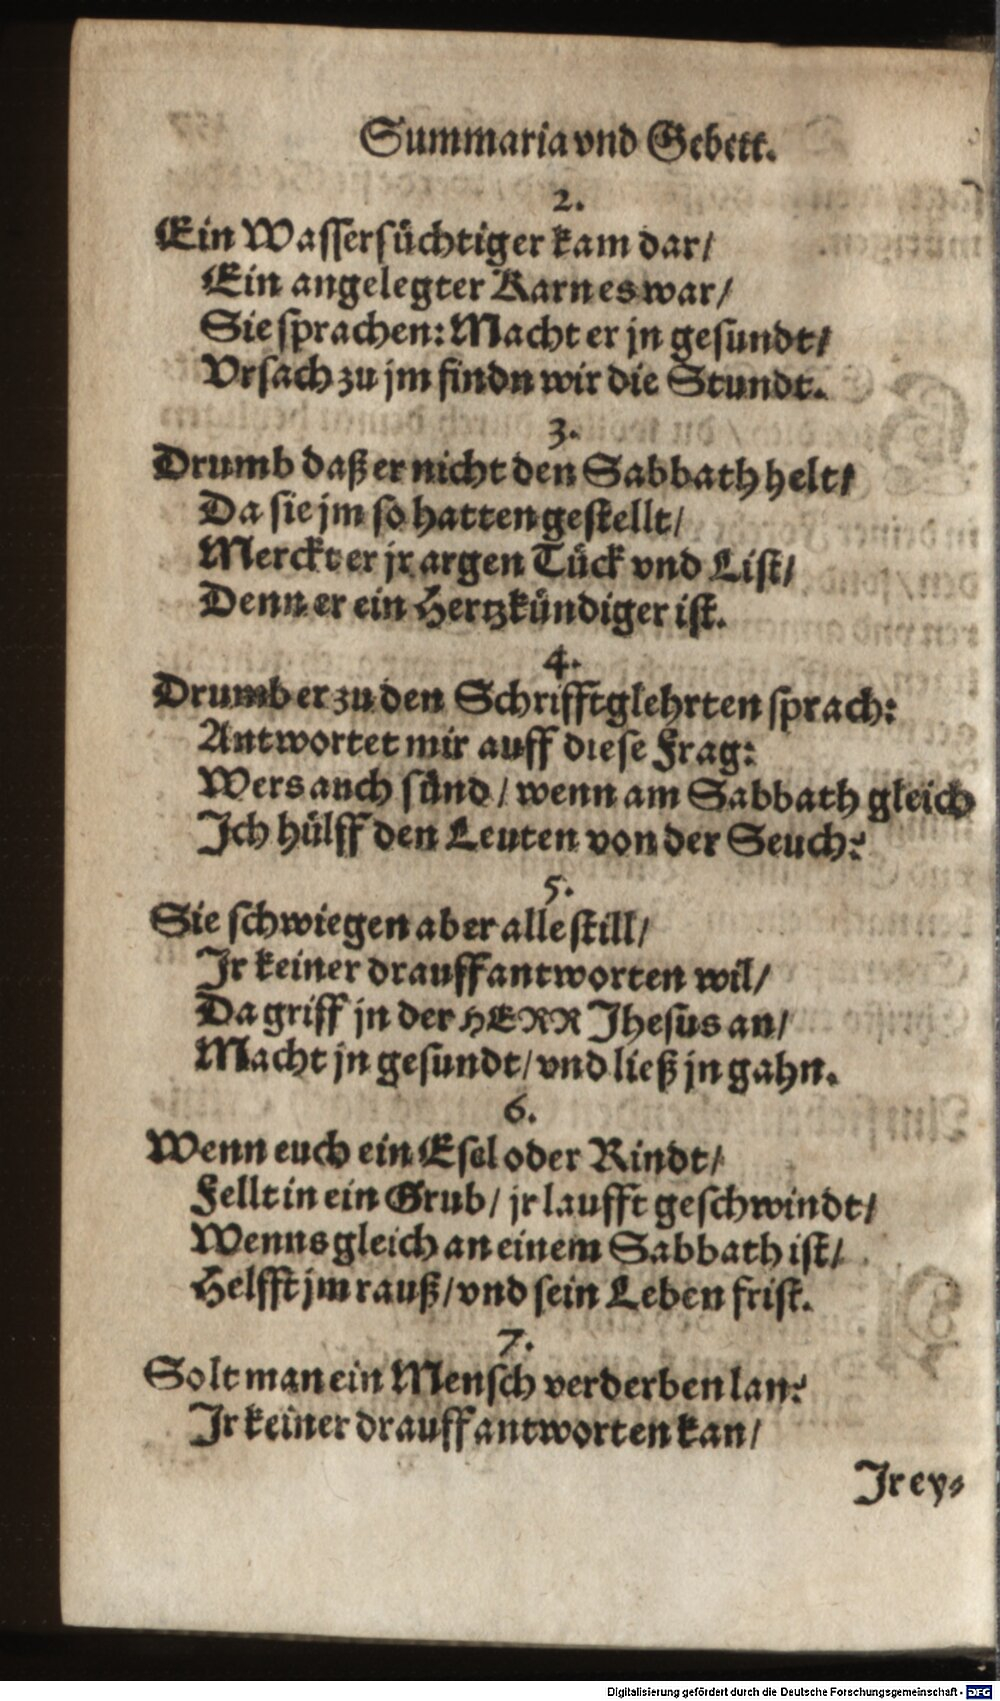 Summaria vnd Gebett.
2.
Ein Wassersüchtiger kam dar/
Ein angelegter Karn es war/
Sie sprachen: Macht er jn gesundt/
Vrsach zu jm findn wir die Stundt.
3.
Drumb daß er nicht den Sabbath helt/
Da sie jm so hatten gestellt/
Merckt er jr argen Tück vnd List/
Denn er ein Hertzkündiger ist.
4.
Drumb er zu den Schrifftglehrten sprach:
Antwortet mir auff diese Frag:
Wers auch sünd/ wenn am Sabbath gleich
Ich hülff den Leuten von der Seuch?
5.
Sie schwiegen aber alle still/
Ir keiner drauff antworten wil/
Da griff jn der HERR Jhesus an/
Macht jn gesundt/ vnd ließ jn gahn.
6.
Wenn euch ein Esel oder Rindt/
Fellt in ein Grub/ jr laufft geschwindt/
Wenns gleich an einem Sabbath ist/
Helfft jm rauß/ vnd sein Leben frist.
7.
Solt man ein Mensch verderben lan?
Ir keiner drauff antworten kan/
Ir ey-
Digitalisierung gefördert durch die Deutsche Forschungsgemeinschaft - DFG